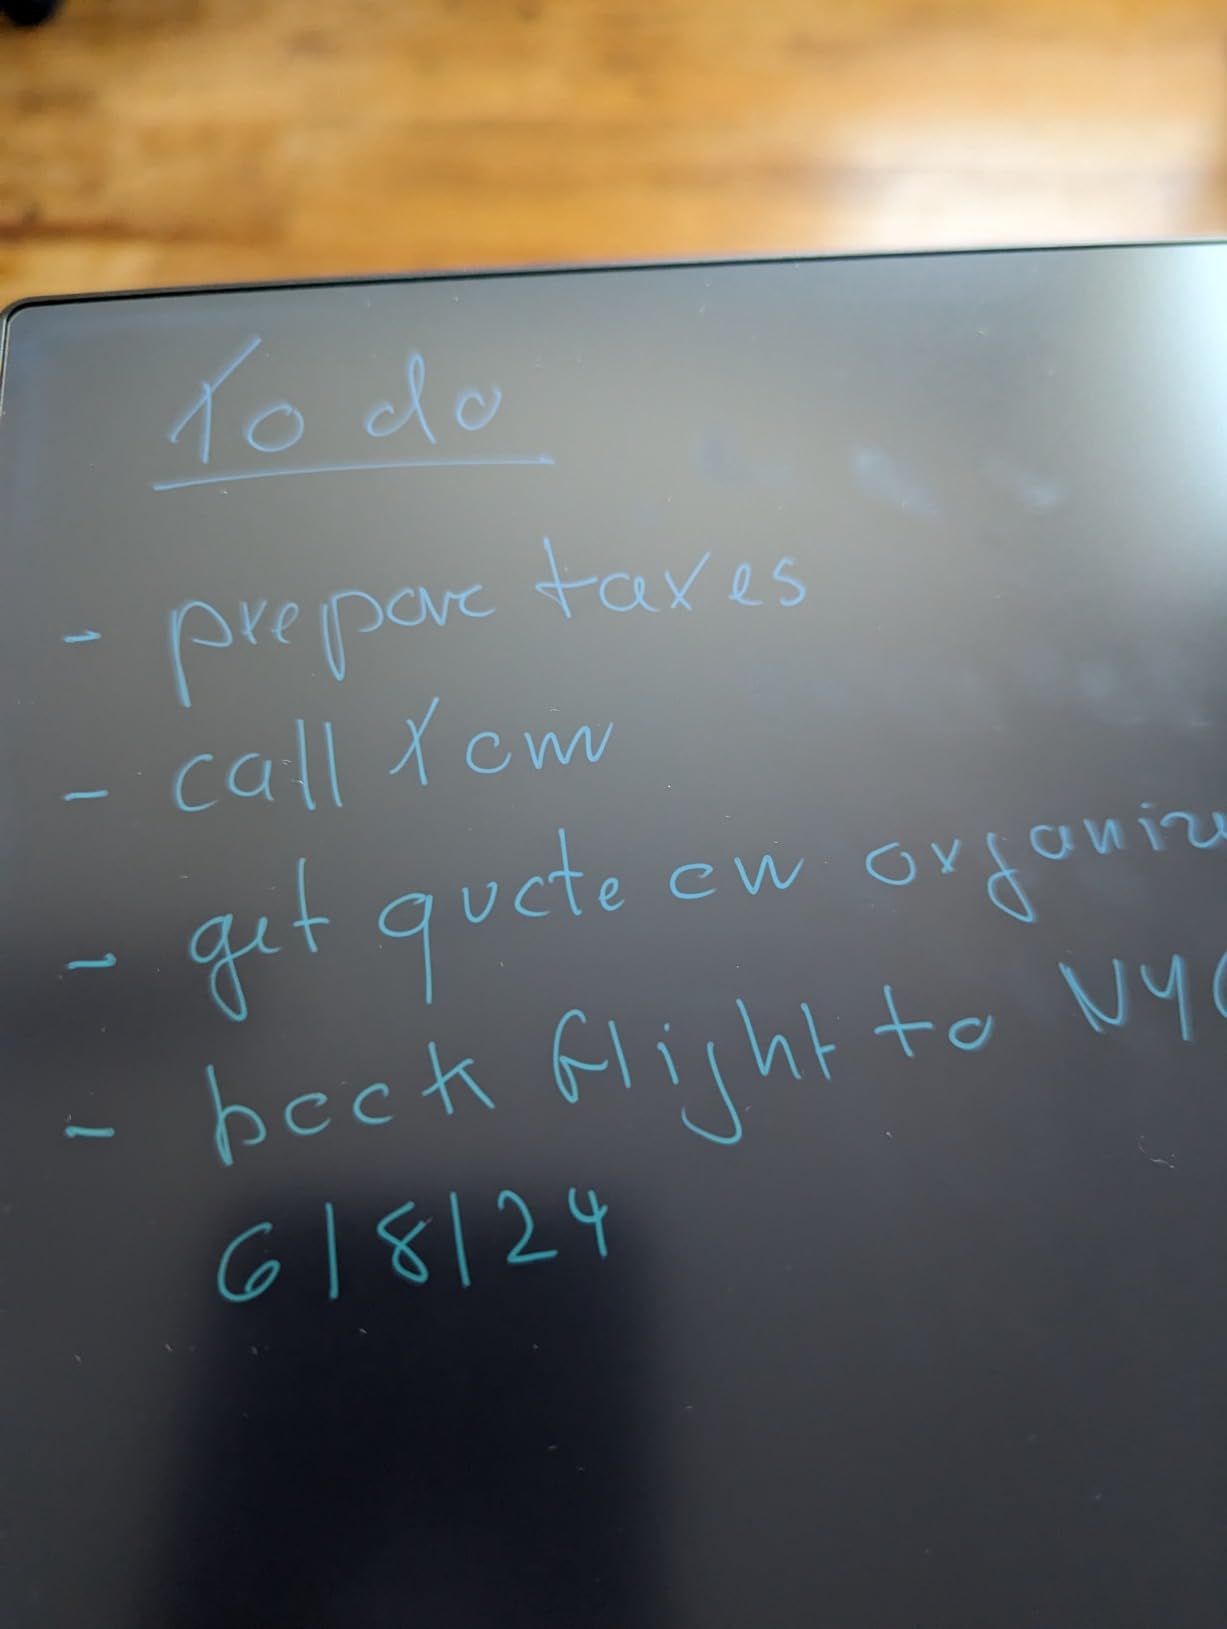 To do
- prepare taxes
- call Tom
- get quote on organiz
- book flight to NYC
6/8/24